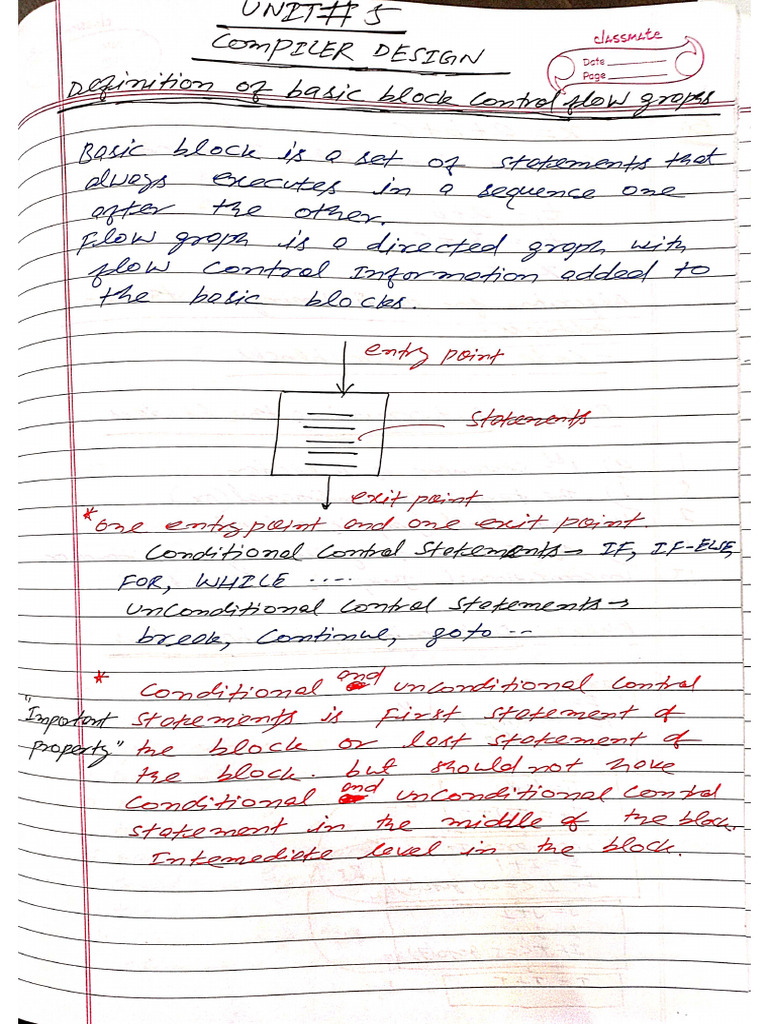 UNIT# 5
COMPILER DESIGN
classmate
Date
Page
Definition of basic block control flow graphs
Basic block is a set of statements that
always executes in a sequence one
after the other.
Flow graph is a directed graph with
flow control information added to
the basic blocks.
entry point
statements
exit point
*one entry point and one exit point.
Conditional control statements → IF, IF-ELSE,
FOR, WHILE .....
unconditional control statements →
break, continue, goto --
* Conditional and unconditional control
"Important statements is first statement of
property" the block or last statement of
the block. but should not have
Conditional and unconditional control
statement in the middle of the block.
Intemediate level in the block.